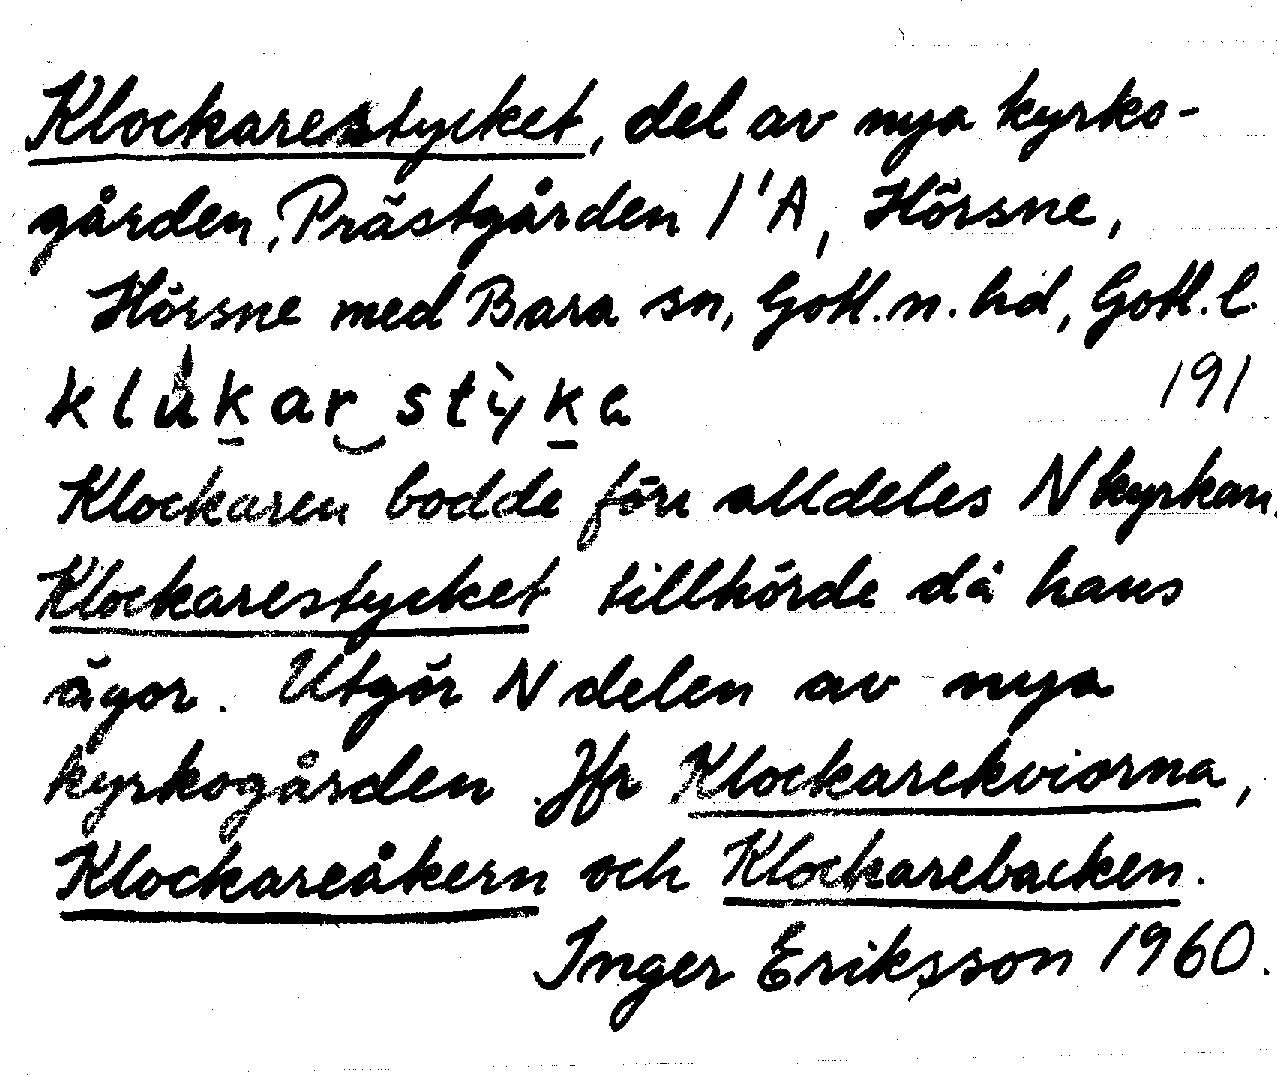 Klockarestycket, del av nya kyrko-
gården, Prästgården 1'A, Hörsne,
Hörsne med Bara sn, Gotl. n. hd, Gotl. l.
klùkar‿stỳka
191
Klockaren bodde förr alldeles N kyrkan.
Klockarestycket tillhörde då hans
ägor. Utgör N delen av nya
kyrkogården. Jfr Klockarekviorna,
Klockareåkern och Klockarebacken.
Inger Eriksson 1960.